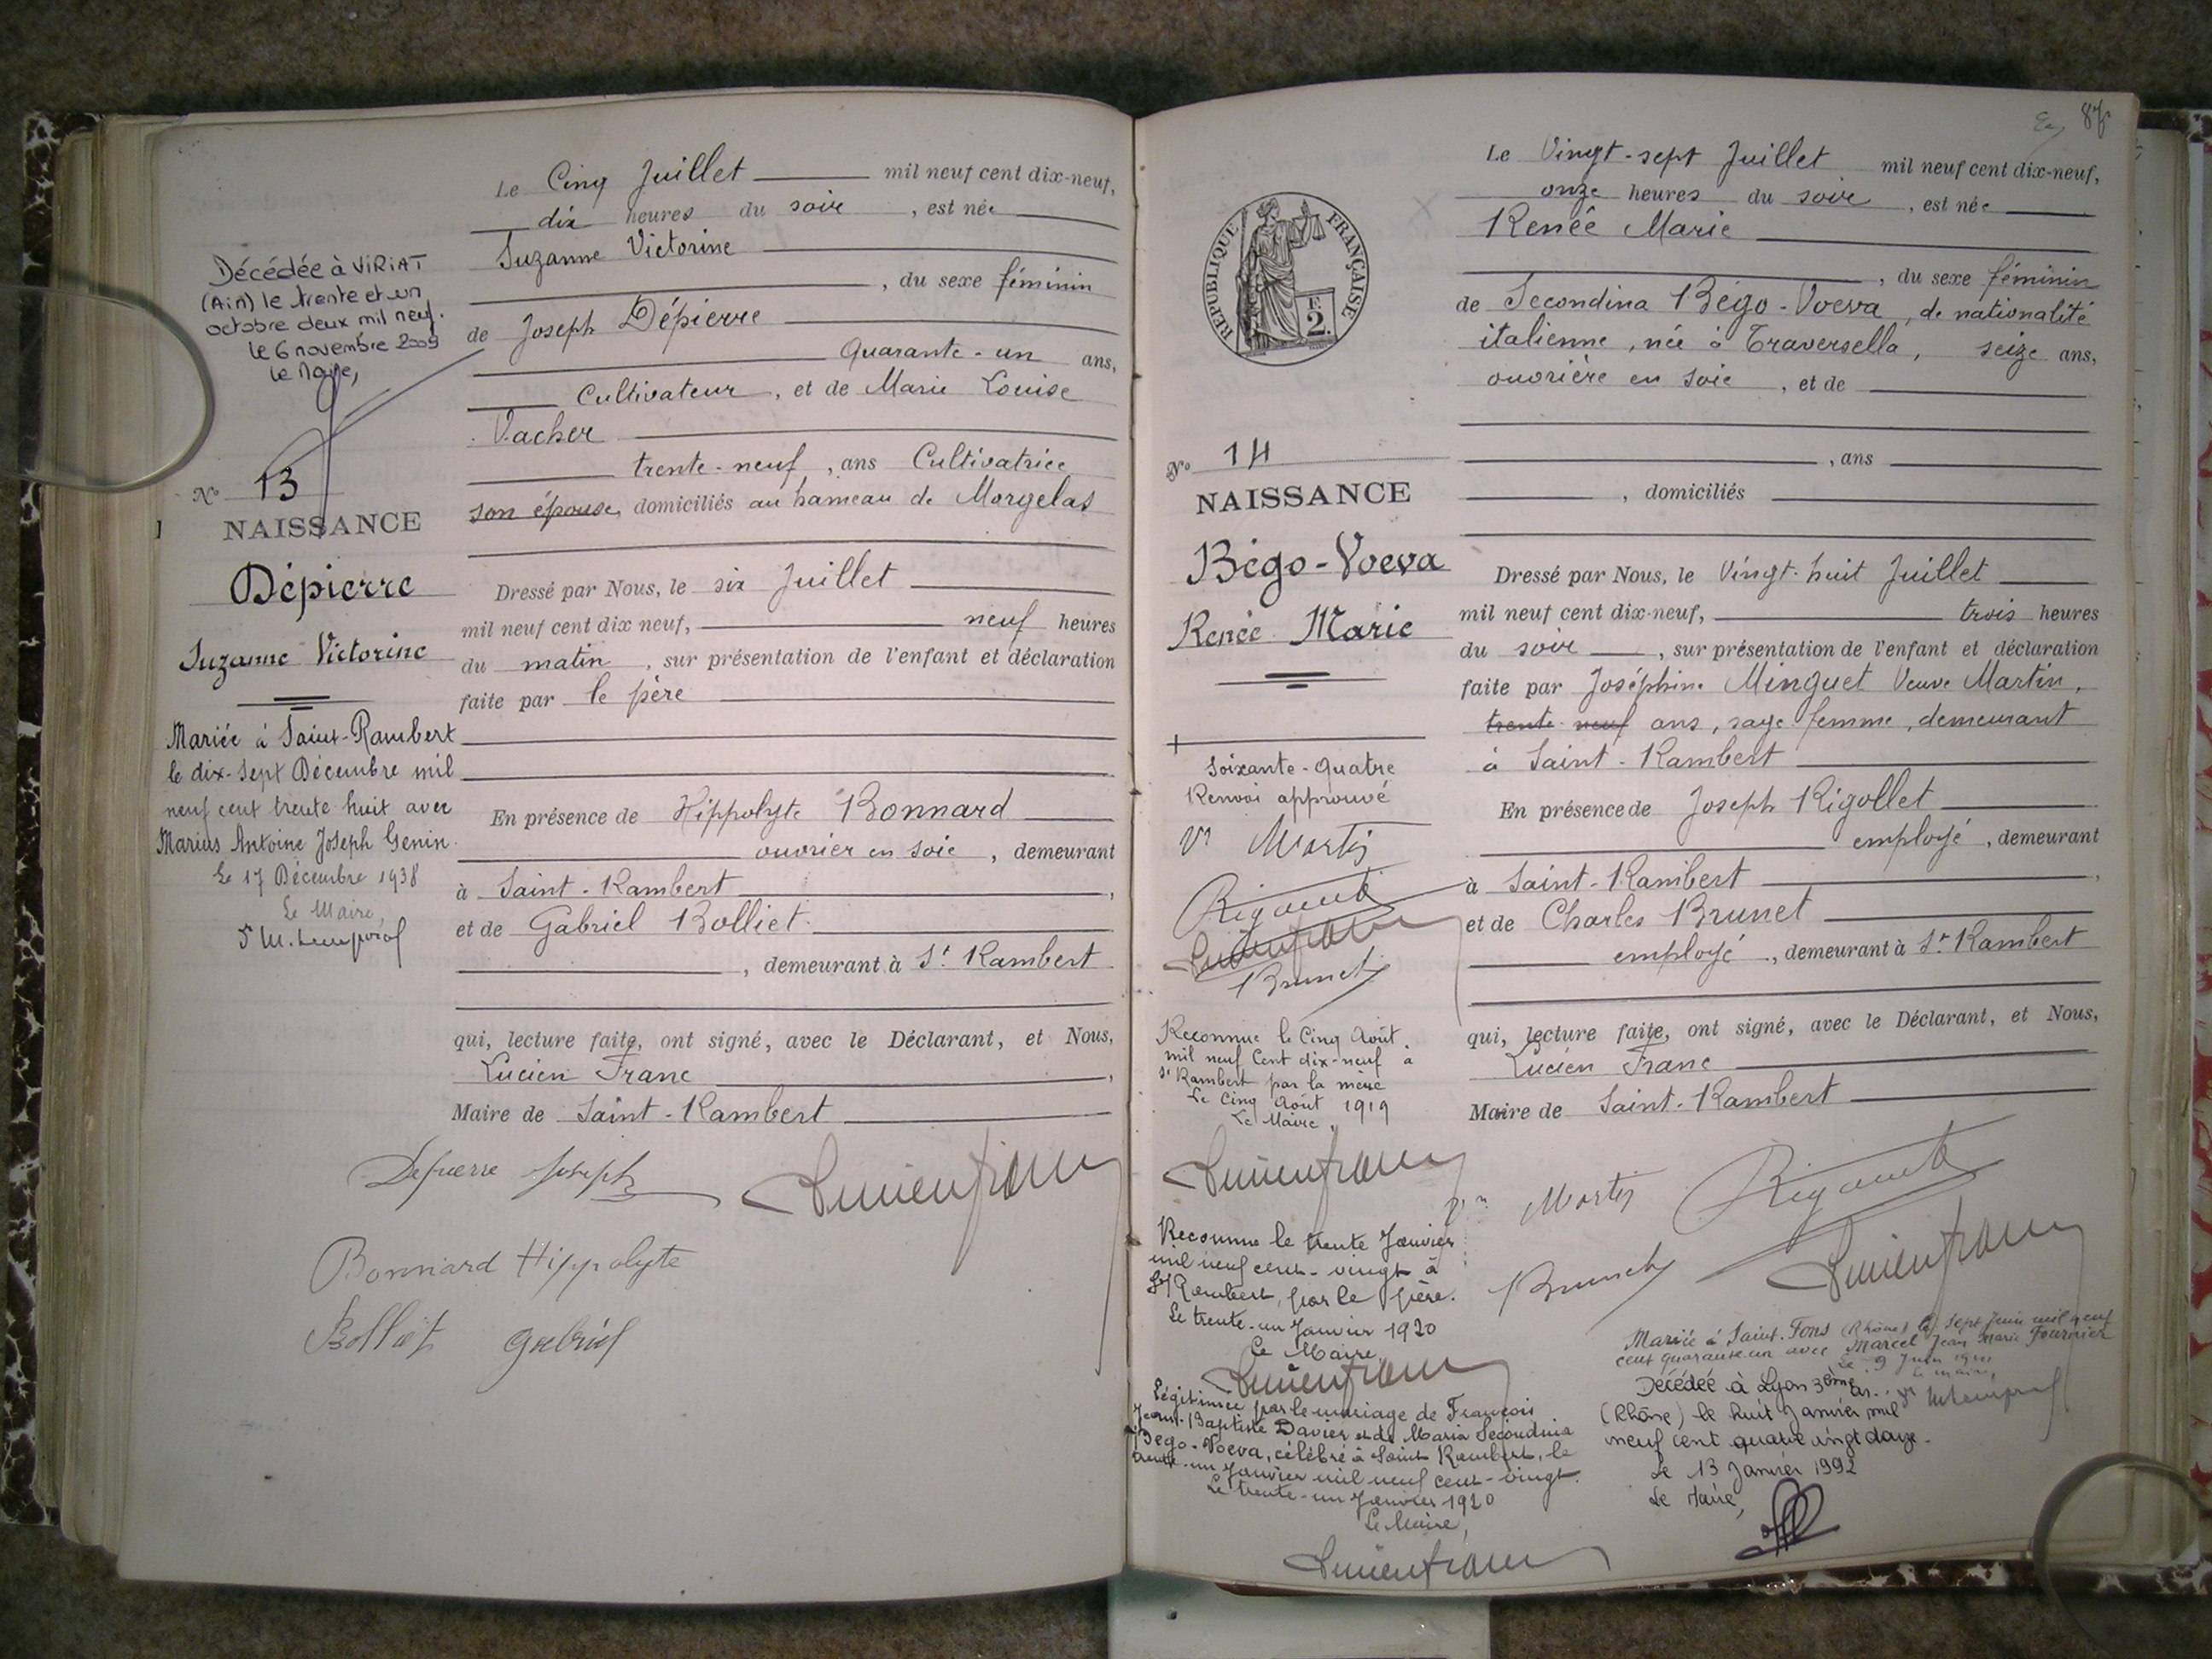 Le Cinq Juillet mil neuf cent dix-neuf,
dix heures du soir, est née
Suzanne Victorine
, du sexe féminin
de Joseph Dépierre
Quarante-un ans,
Cultivateur, et de Marie Louise
Vacher
trente-neuf, ans Cultivatrice
son épouse, domiciliés au hameau de Morgelas
Dressé par Nous, le six Juillet
mil neuf cent dix neuf, neuf heures
du matin, sur présentation de l'enfant et déclaration
faite par le père
En présence de Hippolyte Bonnard
ouvrier en soie, demeurant
à Saint-Rambert,
et de Gabriel Bolliet
, demeurant à St. Rambert
qui, lecture faite, ont signé, avec le Déclarant, et Nous,
Lucien Franc,
Maire de Saint-Rambert
Depierre Joseph
Lucien franc
Bonnard Hippolyte
Bolliet Gabriel
Décédée à VIRIAT
(Ain) le trente et un
octobre deux mil neuf.
le 6 novembre 2009
Le Maire,
No 13
NAISSANCE
Dépierre
Suzanne Victorine
Mariée à Saint-Rambert
le dix-sept Décembre mil
neuf cent trente huit avec
Marius Antoine Joseph Genin.
Le 17 Décembre 1938
Le Maire,
87
Le Vingt-sept Juillet mil neuf cent dix-neuf,
onze heures du soir, est née
Renée Marie
, du sexe féminin
de Secondina Bégo-Voeva, de nationalité
italienne, née à Traversella, seize ans,
ouvrière en soie, et de
, ans
, domiciliés
Dressé par Nous, le Vingt-huit Juillet
mil neuf cent dix-neuf, trois heures
du soir, sur présentation de l'enfant et déclaration
faite par Joséphine Minguet Veuve Martin,
trente-neuf ans, sage femme, demeurant
à Saint-Rambert
En présence de Joseph Rigollet
employé, demeurant
à Saint-Rambert,
et de Charles Brunet
employé, demeurant à St. Rambert
qui, lecture faite, ont signé, avec le Déclarant, et Nous,
Lucien Franc
Maire de Saint-Rambert
Vve Martin
Brunet
Lucien franc
REPUBLIQUE FRANÇAISE
F.
2.
No 14
NAISSANCE
Bégo-Voeva
Renée Marie
Soixante-quatre
Renvoi approuvé
Vve Martin
Lucien franc
Brunet
Reconnue le Cinq Août
mil neuf Cent dix-neuf à
St Rambert par la mère
Le Cinq Août 1919
Le Maire,
Lucien franc
Reconnue le trente Janvier
mil neuf cent-vingt à
St Rambert, par le père.
Le trente-un Janvier 1920
Le Maire
Lucien franc
Légitimée par le mariage de François
Jean-Baptiste Davier et de Maria Secondina
Bego-Voeva, célébré à Saint Rambert, le
trente-un Janvier mil neuf cent-vingt.
Le trente-un Janvier 1920
Le Maire,
Lucien franc
Mariée à Saint-Fons (Rhône) le sept Juin mil neuf
cent quarante-un avec Marcel Jean Marie Fournier
Le 9 Juin
Le maire,
Décédée à Lyon 3ème ar.
(Rhône) le huit Janvier mil
neuf cent quatre vingt douze.
Le 13 Janvier 1992
Le Maire,